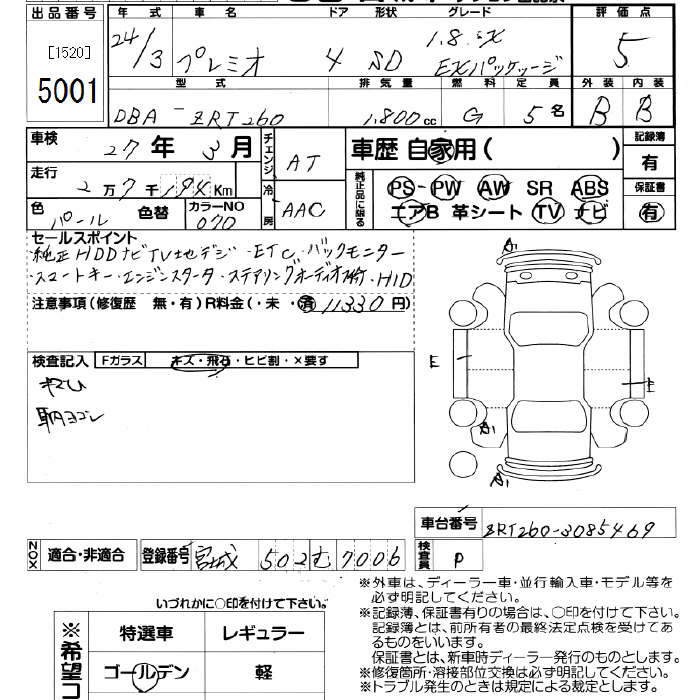 出品番号
[1520]
5001
年式 車名 ドア 形状 グレード 評価点
24/3 プレミオ 4 SD 1.8.X EXパッケージ 5
型式 排気量 燃料 定員 外装 内装
DBA-ZRT260 1.800cc G 5名 B B
車検 27年3月 チェンジ AT 車歴 自家用( ) 記録簿 有
走行 2万7千194Km 冷房 AAC 純正品に限る PS-PW AW SR ABS 保証書 有
色 パール 色替 カラーNO 070 エアB 革シート TV ナビ
セールスポイント
純正HDDナビTV地デジ・ETC・バックモニター
・スマートキー・エンジンスタータ・ステアリングオーディオSW・HID
注意事項(修復歴 無・有)R料金(・未・済 11330円)
検査記入 Fガラス キズ・飛石・ヒビ割・×要す
キズU
車内ヨゴレ
A1
E
E
A1
A1
車台番号 ZRT260-3085469
NOX 適合・非適合 登録番号 宮城 502 む 7006 検査員 P
※外車は、ディーラー車・並行輸入車・モデル等を
必ず明記してください。
いづれかに○印を付けて下さい。
※記録簿、保証書有りの場合は、○印を付けて下さい。
記録簿とは、前所有者の最終法定点検を受けてあ
るものをいいます。
保証書とは、新車時ディーラー発行のものとします。
※修復箇所・溶接部位交換は必ず明記してください。
※トラブル発生のときは規定による裁定とします。
※希望コ
特選車 レギュラー
ゴールデン 軽